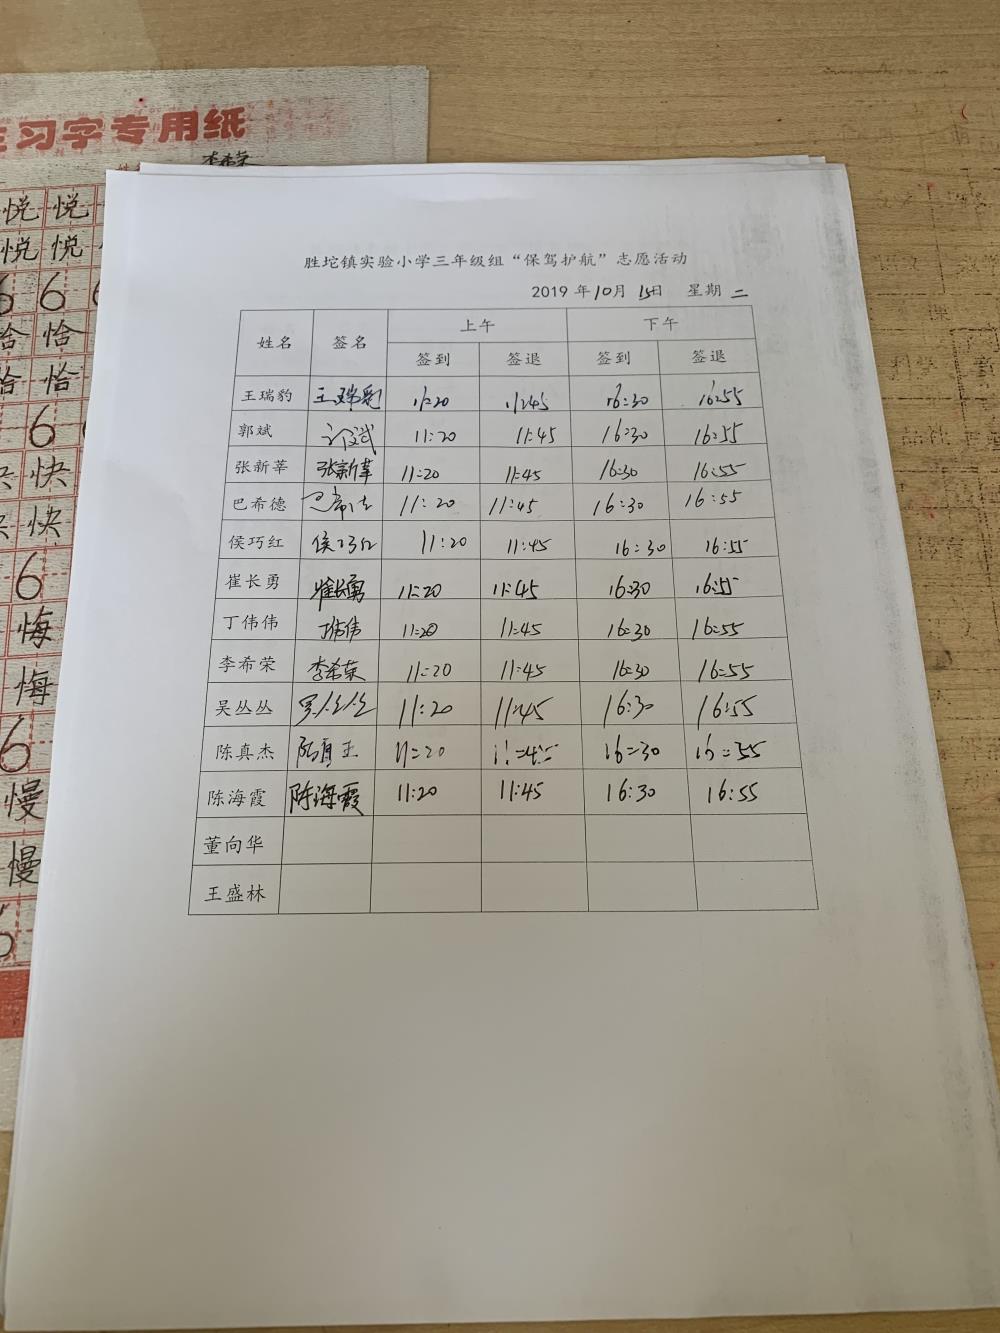 习字专用纸
李希荣
悦 悦
悦 悦
6 6
恰 恰
恰 恰
6
快 快
快
6
悔
悔
6
慢
慢
胜坨镇实验小学三年级组“保驾护航”志愿活动
2019 年 10 月 15 日 星期 二
姓名 签名 上午 下午
签到 签退 签到 签退
王瑞豹 王瑞豹 11:20 11:45 16:30 16:55
郭斌 11:20 11:45 16:30 16:55
张新莘 张新莘 11:20 11:45 16:30 16:55
巴希德 巴希德 11:20 11:45 16:30 16:55
侯巧红 侯巧红 11:20 11:45 16:30 16:55
崔长勇 崔长勇 11:20 11:45 16:30 16:55
丁伟伟 丁伟伟 11:20 11:45 16:30 16:55
李希荣 李希荣 11:20 11:45 16:30 16:55
吴丛丛 吴丛丛 11:20 11:45 16:30 16:55
陈真杰 11:20 11:45 16:30 16:55
陈海霞 陈海霞 11:20 11:45 16:30 16:55
董向华
王盛林